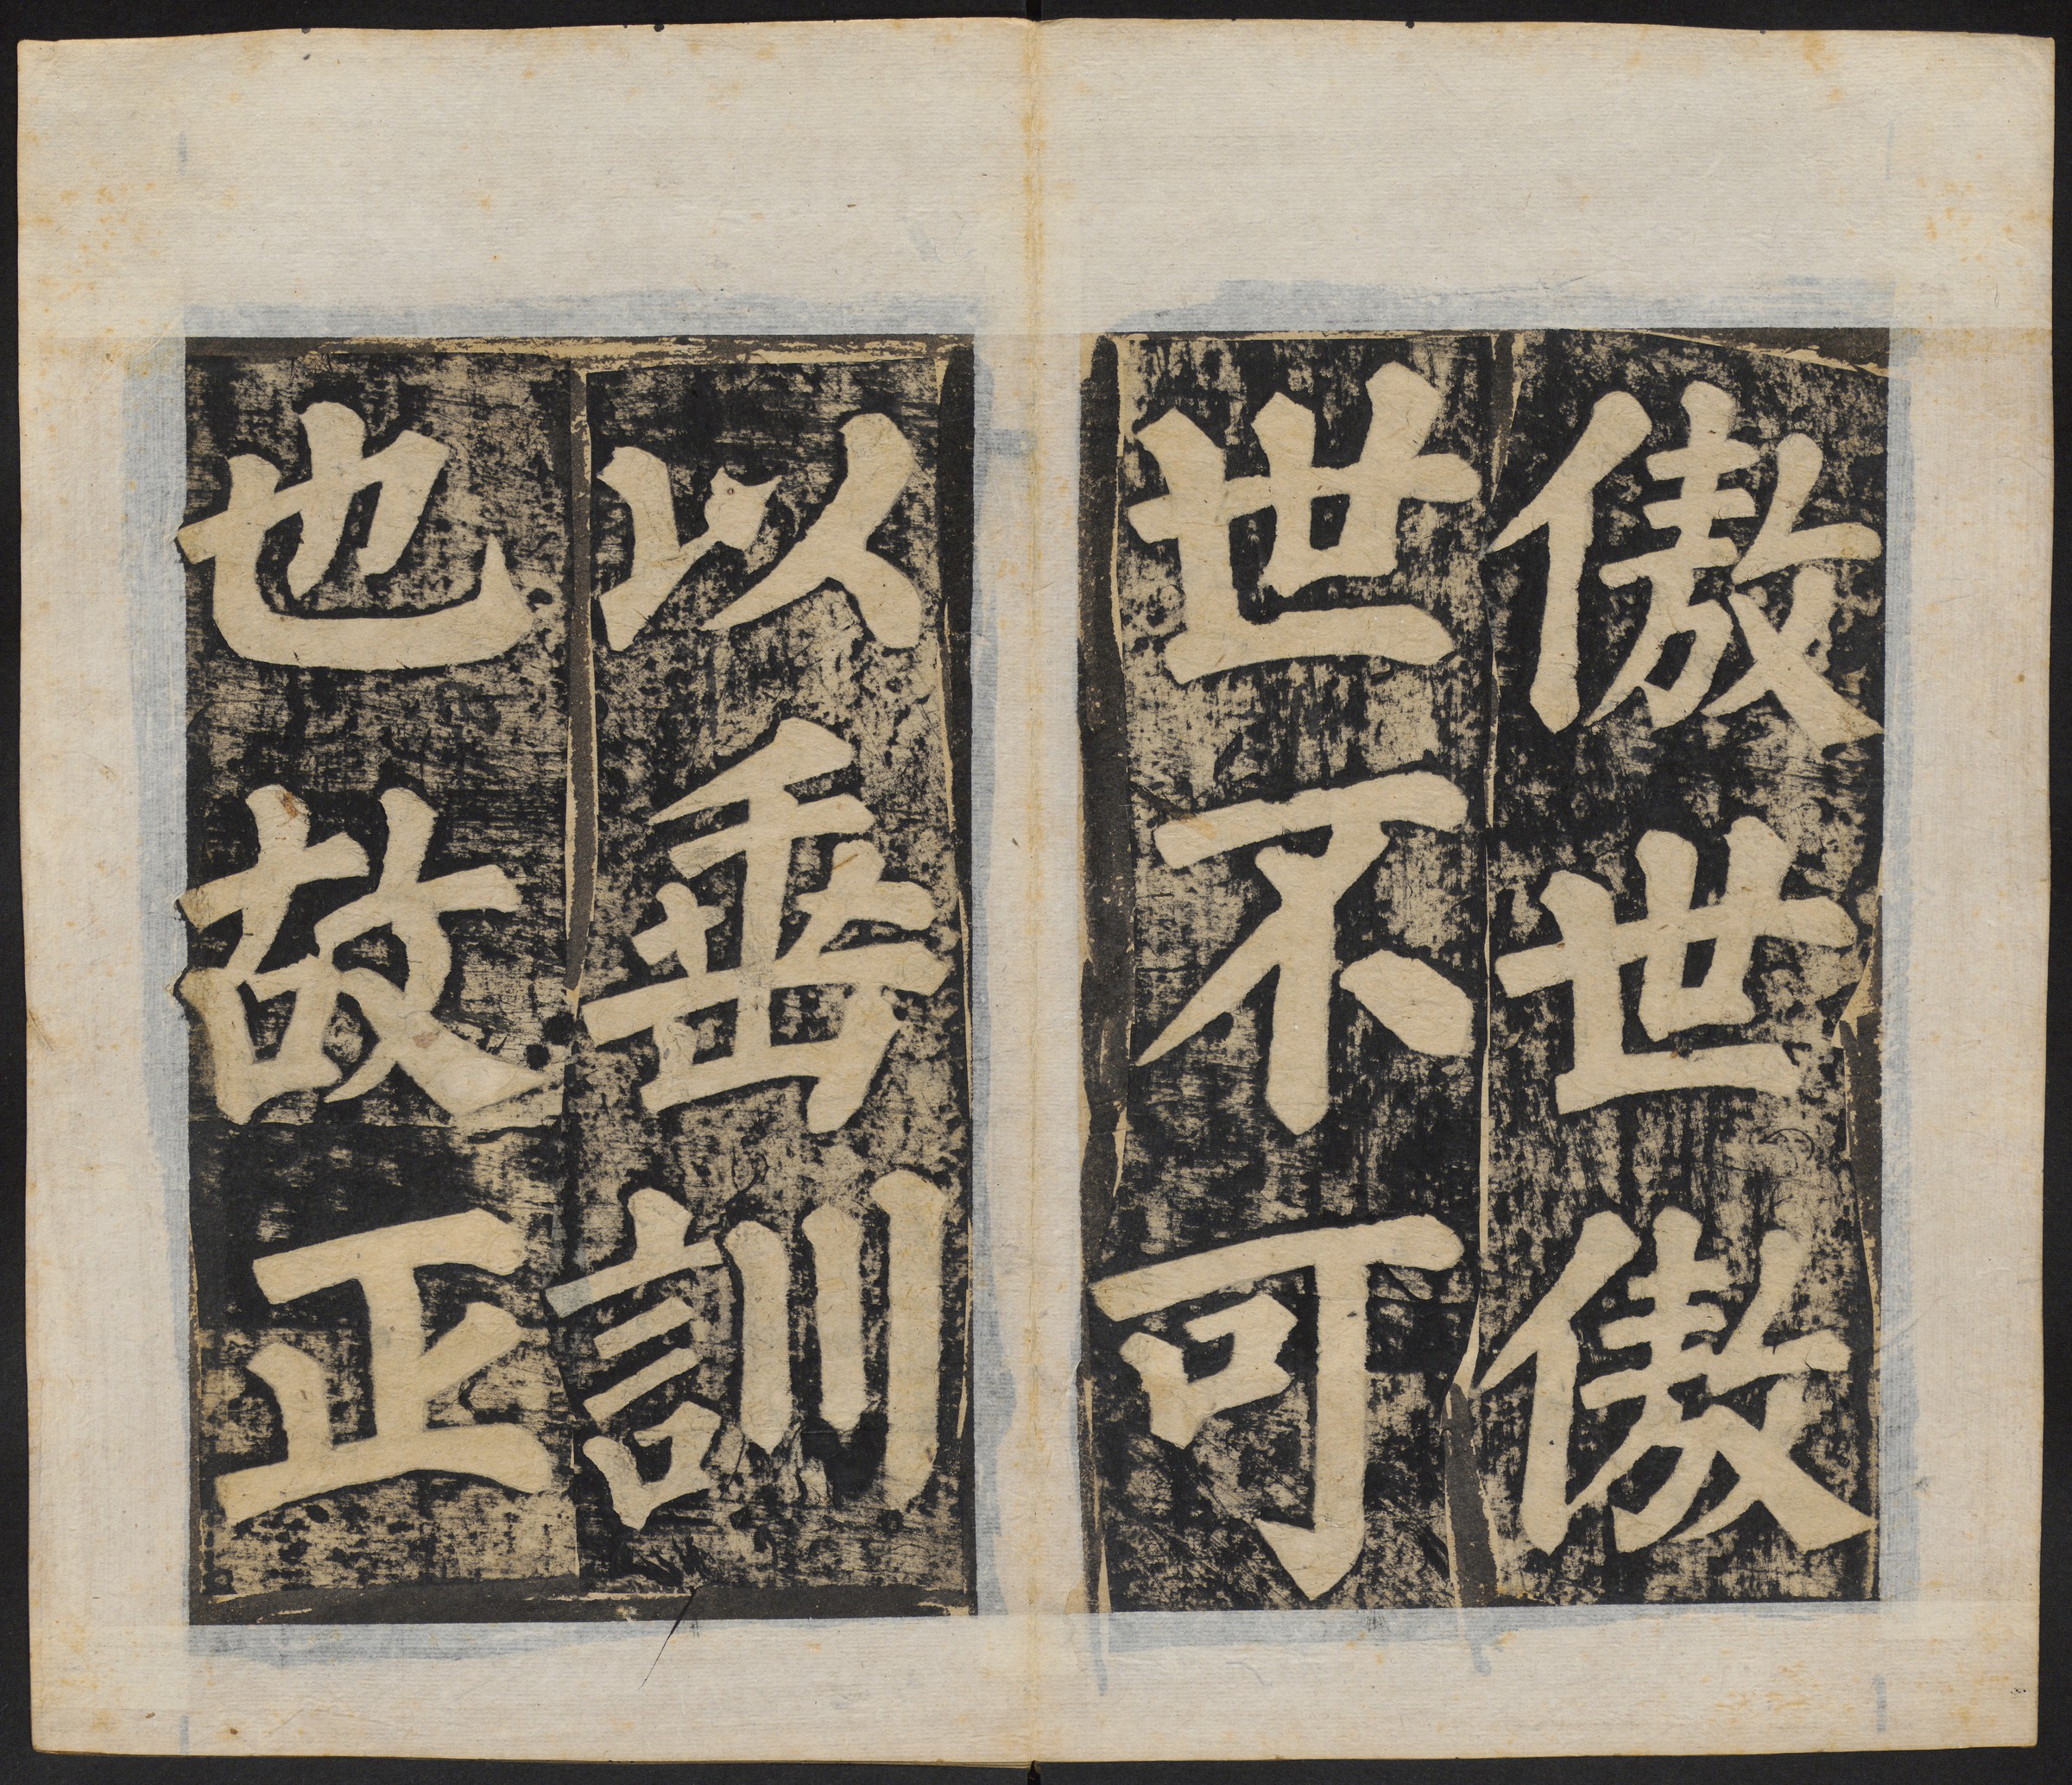 傲世傲
世不可
以垂訓
也故正